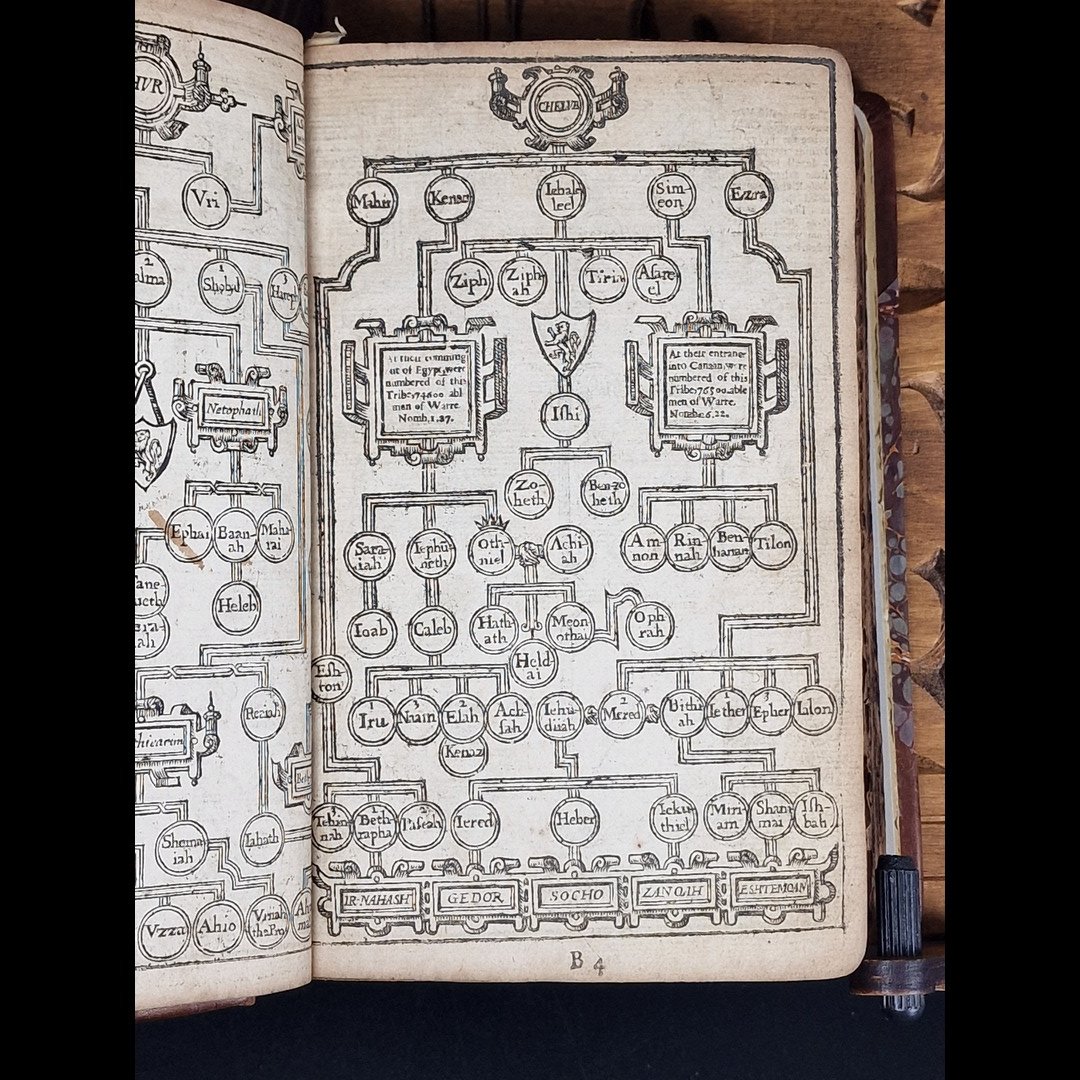 Vri
2
1
Shobal
3
Netophath
Ephai
Baan-
ah
Maha-
rai
Heleb
Reaiah
Shema
iah
Iahath
Vzza
Ahio
Vriah
the Pro
CHELVB
Mahir
Kenaz
Iehale
leel
Sim-
eon
Ezra
Ziph
Ziph-
ah
Tiria
Asare-
el
At their comming
out of Egypt, were
numbered of this
Tribe: 74600 abl
men of Warre.
Nomb. 1. 27.
At their entrance
into Canaan, were
numbered of this
Tribe: 76500. able
men of Warre.
Nomb: 26, 22.
Ishi
Zo-
heth
Ben-zo
heth
Sara-
iah
Iephu-
neth
Oth-
niel
Achi-
ah
Am-
non
Rin-
nah
Ben-
hanan
Tilon
Ioab
Caleb
Hath-
ath
Meon-
othai
Oph
rah
Held-
ai
Esh-
ton
1
Iru
3
Nain
2
Elah
Ach-
sah
Iehu-
diiah
2
Mered
Bithi-
ah
1
Iether
3
Epher
Ialon
Kenaz
Tehin-
nah
1
Beth-
rapha
2
Paseah
Iered
Heber
Ieku-
thiel
Miri-
am
Sham-
mai
Ish-
bah
IR-NAHASH
GEDOR
SOCHO
ZANOAH
ESHTEMOAN
B 4